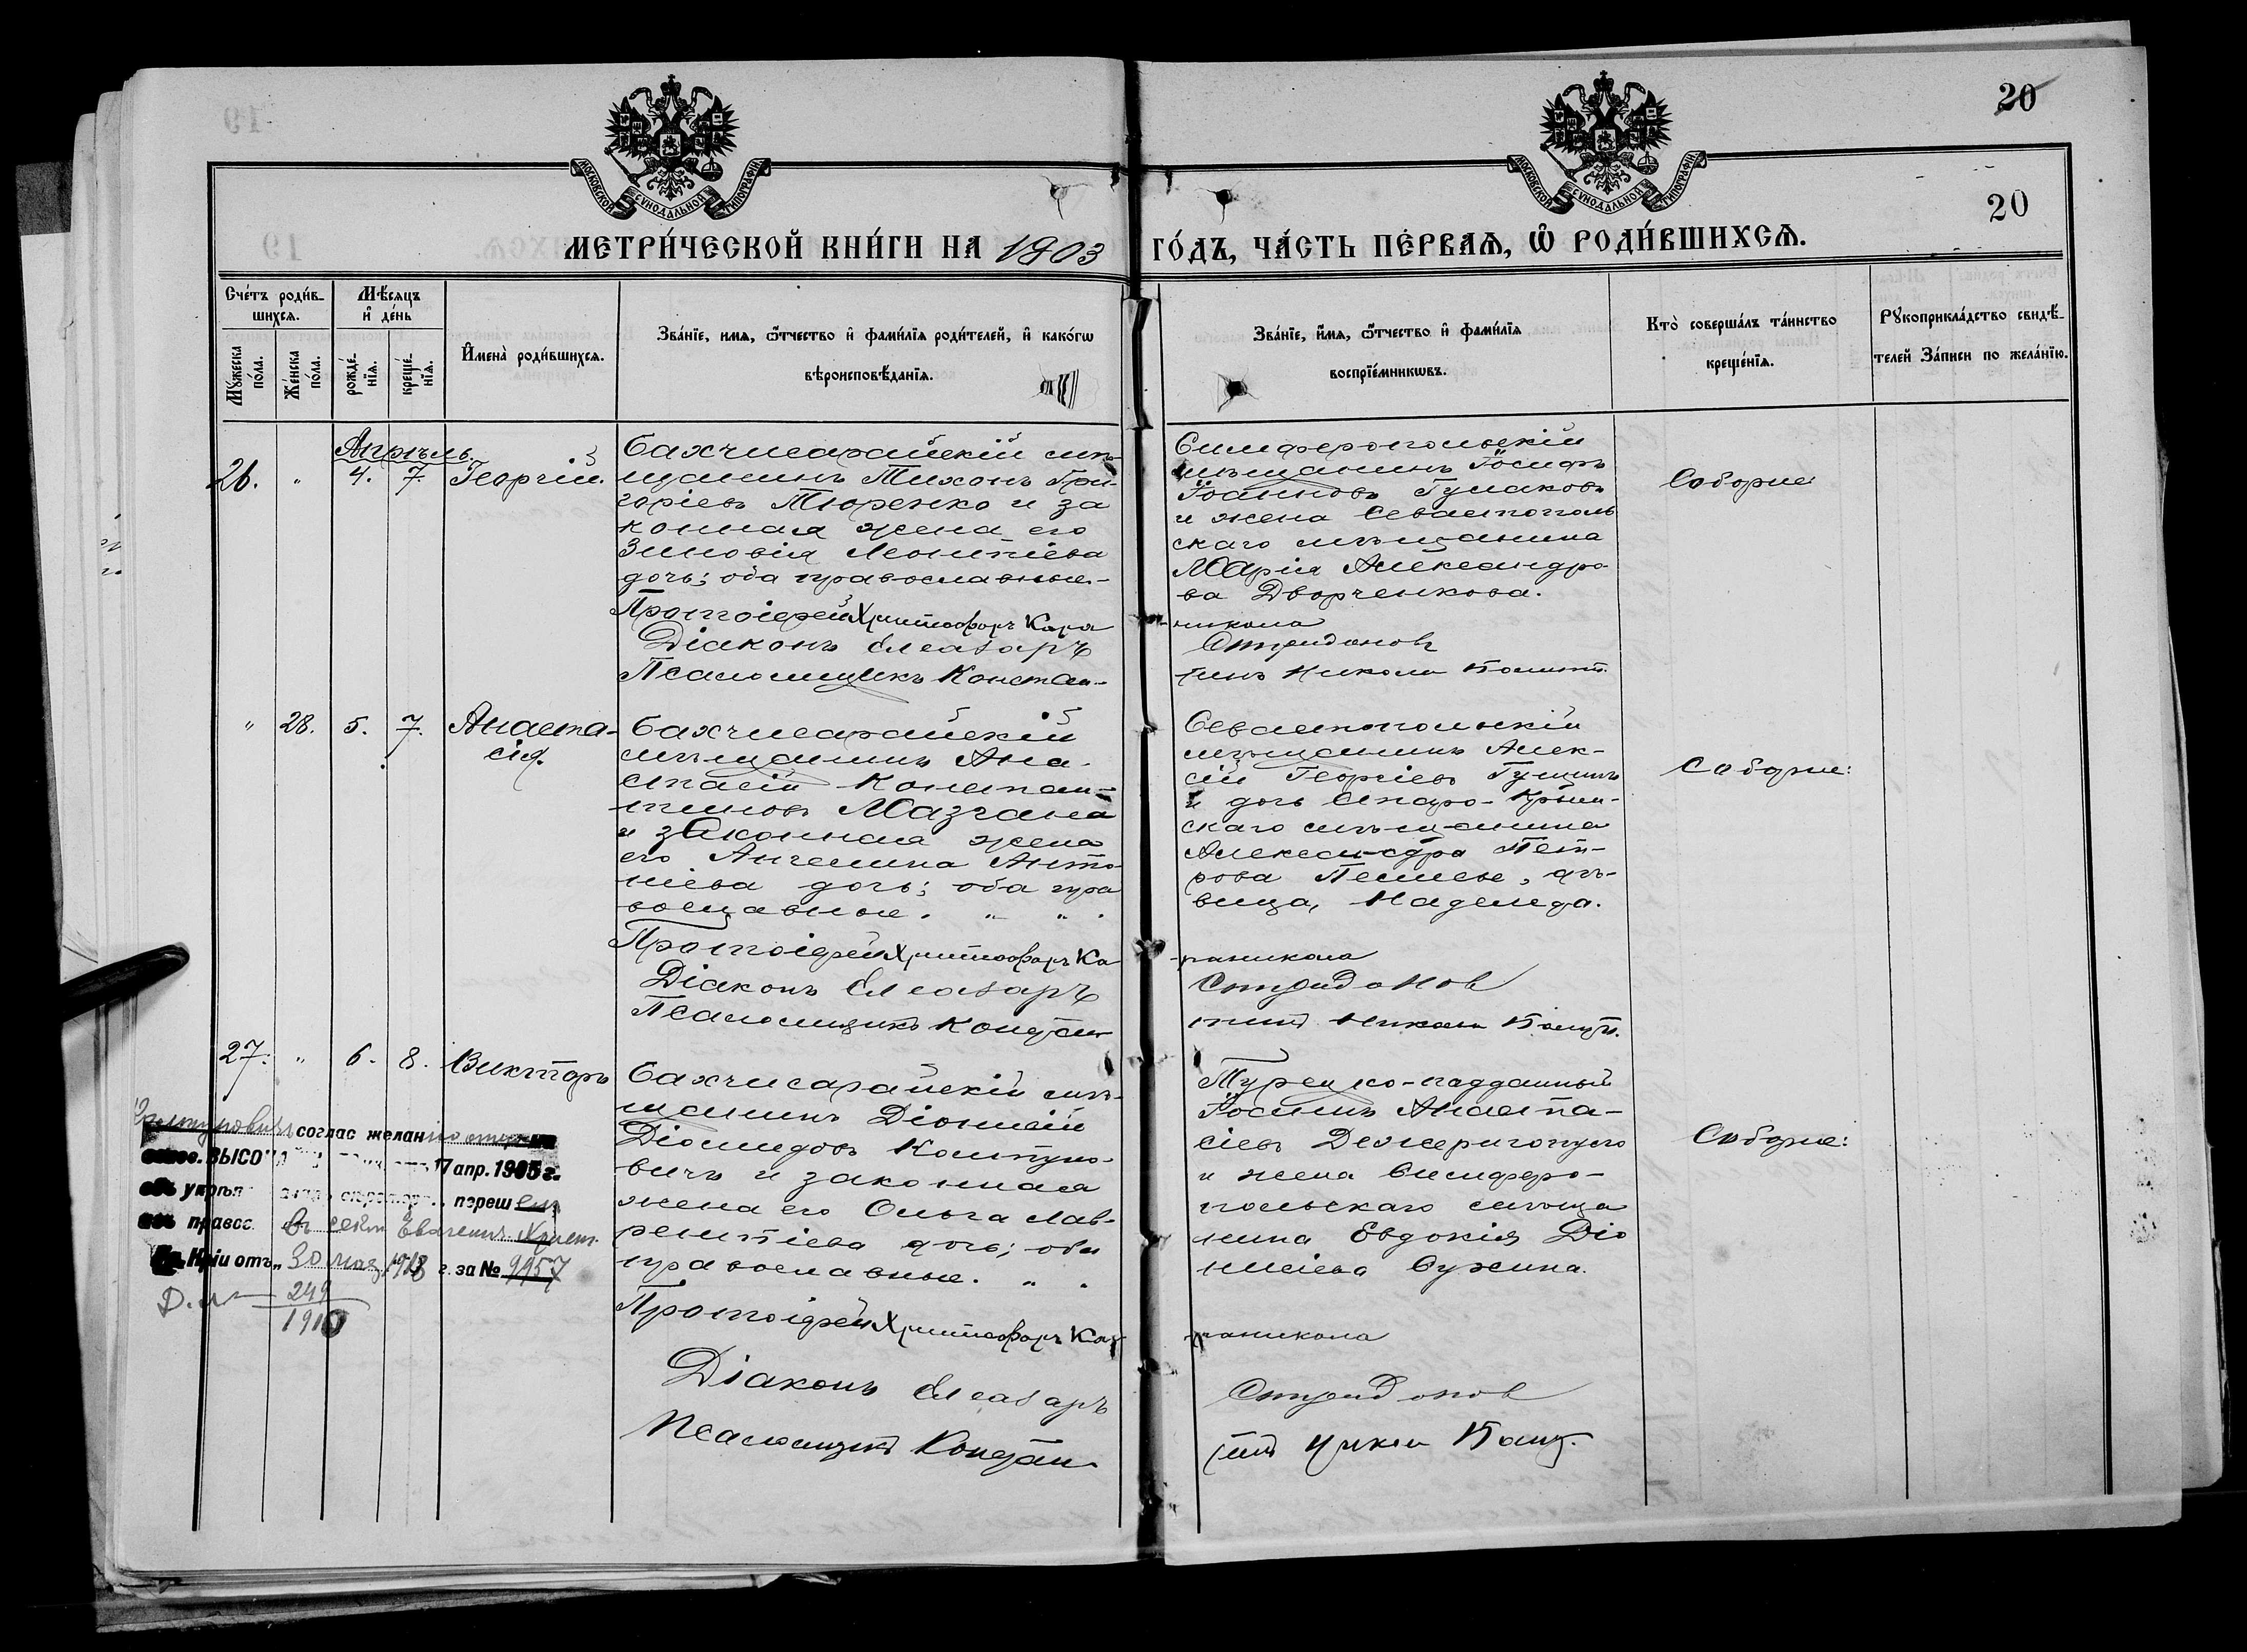 20
МОСКОВСКОЙ СУНОДАЛЬНОЙ ТИПОГРАФІИ
МОСКОВСКОЙ СУНОДАЛЬНОЙ ТИПОГРАФІИ
20
МЕТРИ́ЧЕСКОЙ КНИ́ГИ НА 1903 ГО́ДЪ, ЧА́СТЬ ПЕ́РВАѦ, Ѡ҆ РОДИ́ВШИХСѦ.
Сче́тъ роди́в-
шихсѧ.
Мꙋ́жеска по́ла.
Же́нска по́ла.
Мѣ́сяцъ и҆ де́нь
рожде́-нїѧ.
креще́-нїѧ.
И҆мена̀ роди́вшихсѧ.
Зва́нїе, имѧ, ѻ҆́тчество и҆ фами́лїѧ роди́телей, и҆ како́гѡ
вѣроисповѣ́данїѧ.
Зва́нїе, и҆́мѧ, ѻ҆́тчество и҆ фами́лїѧ
воспрїе́мникѡвъ.
Кто̀ соверша́лъ та́инство
креще́нїѧ.
Рꙋкоприкла́дство свидѣ́-
телей За́писи по жела́нїю.
Апрѣль.
26. " 4. 7. Георгій.
Бахчисарайскій мѣ-
щанинъ Тихонъ Гри-
горіевъ Тюренко и за
конная жена его
Зиновія Леонтіева
дочь; оба православные.
Протоіерей Христофоръ Кара
Діаконъ Елеазаръ
Псаломщикъ Констан-
Симферопольскій
мѣщанинъ Іосифъ
Іоанновъ Гумаковъ
и жена Севастополь
скаго мѣщанина
Марія Александро-
ва Дворченкова.
никола
Спиридонов
тинъ Никола
Соборне
" 28. 5. 7. Анаста-
сія.
Бахчисарайскій
мѣщанинъ Ана-
стасій Констан-
тиновъ Мазгана
и законная жена
его Ангелина Анто-
ніева дочь; оба пра
вославные. " " .
Протоіерей Христофоръ Ка
Діаконъ Елеазаръ
Псаломщикъ Констан
Севастопольскій
мѣщанинъ Алек-
сій Георгіевъ Гущинъ
и дочь Старо-Крым-
скаго мѣщанина
Александра Пет-
рова дѣ-
вица, Надежда.
раникола
Спиридонов
тинъ Никола
Соборне:
27. " 6. 8. Викторъ
Бахчисарайскій мѣ-
щанинъ Діонисій
Діомидовъ Комтуно-
вичъ и законная
жена его Ольга Лав-
рентіева дочь; оба
православные. " .
Протоіерей Христофоръ Кар
Діаконъ Елеазаръ
Псаломщикъ Констан
Турецко-подданный
Іоаннъ Анаста-
сіевъ
и жена Симферо-
польскаго мѣща
нина Евдокія Діо
нисіева Сужина.
раникола
Спиридонов
тинъ Никола
Соборне:
соглас желан
ВЫСО 17 апр. 1905 г.
объ укрѣп переш
изъ правос. въ секту Евангел. Христ.
отъ „30 мая 1918 г. за № 9957
Д. № 249
1910